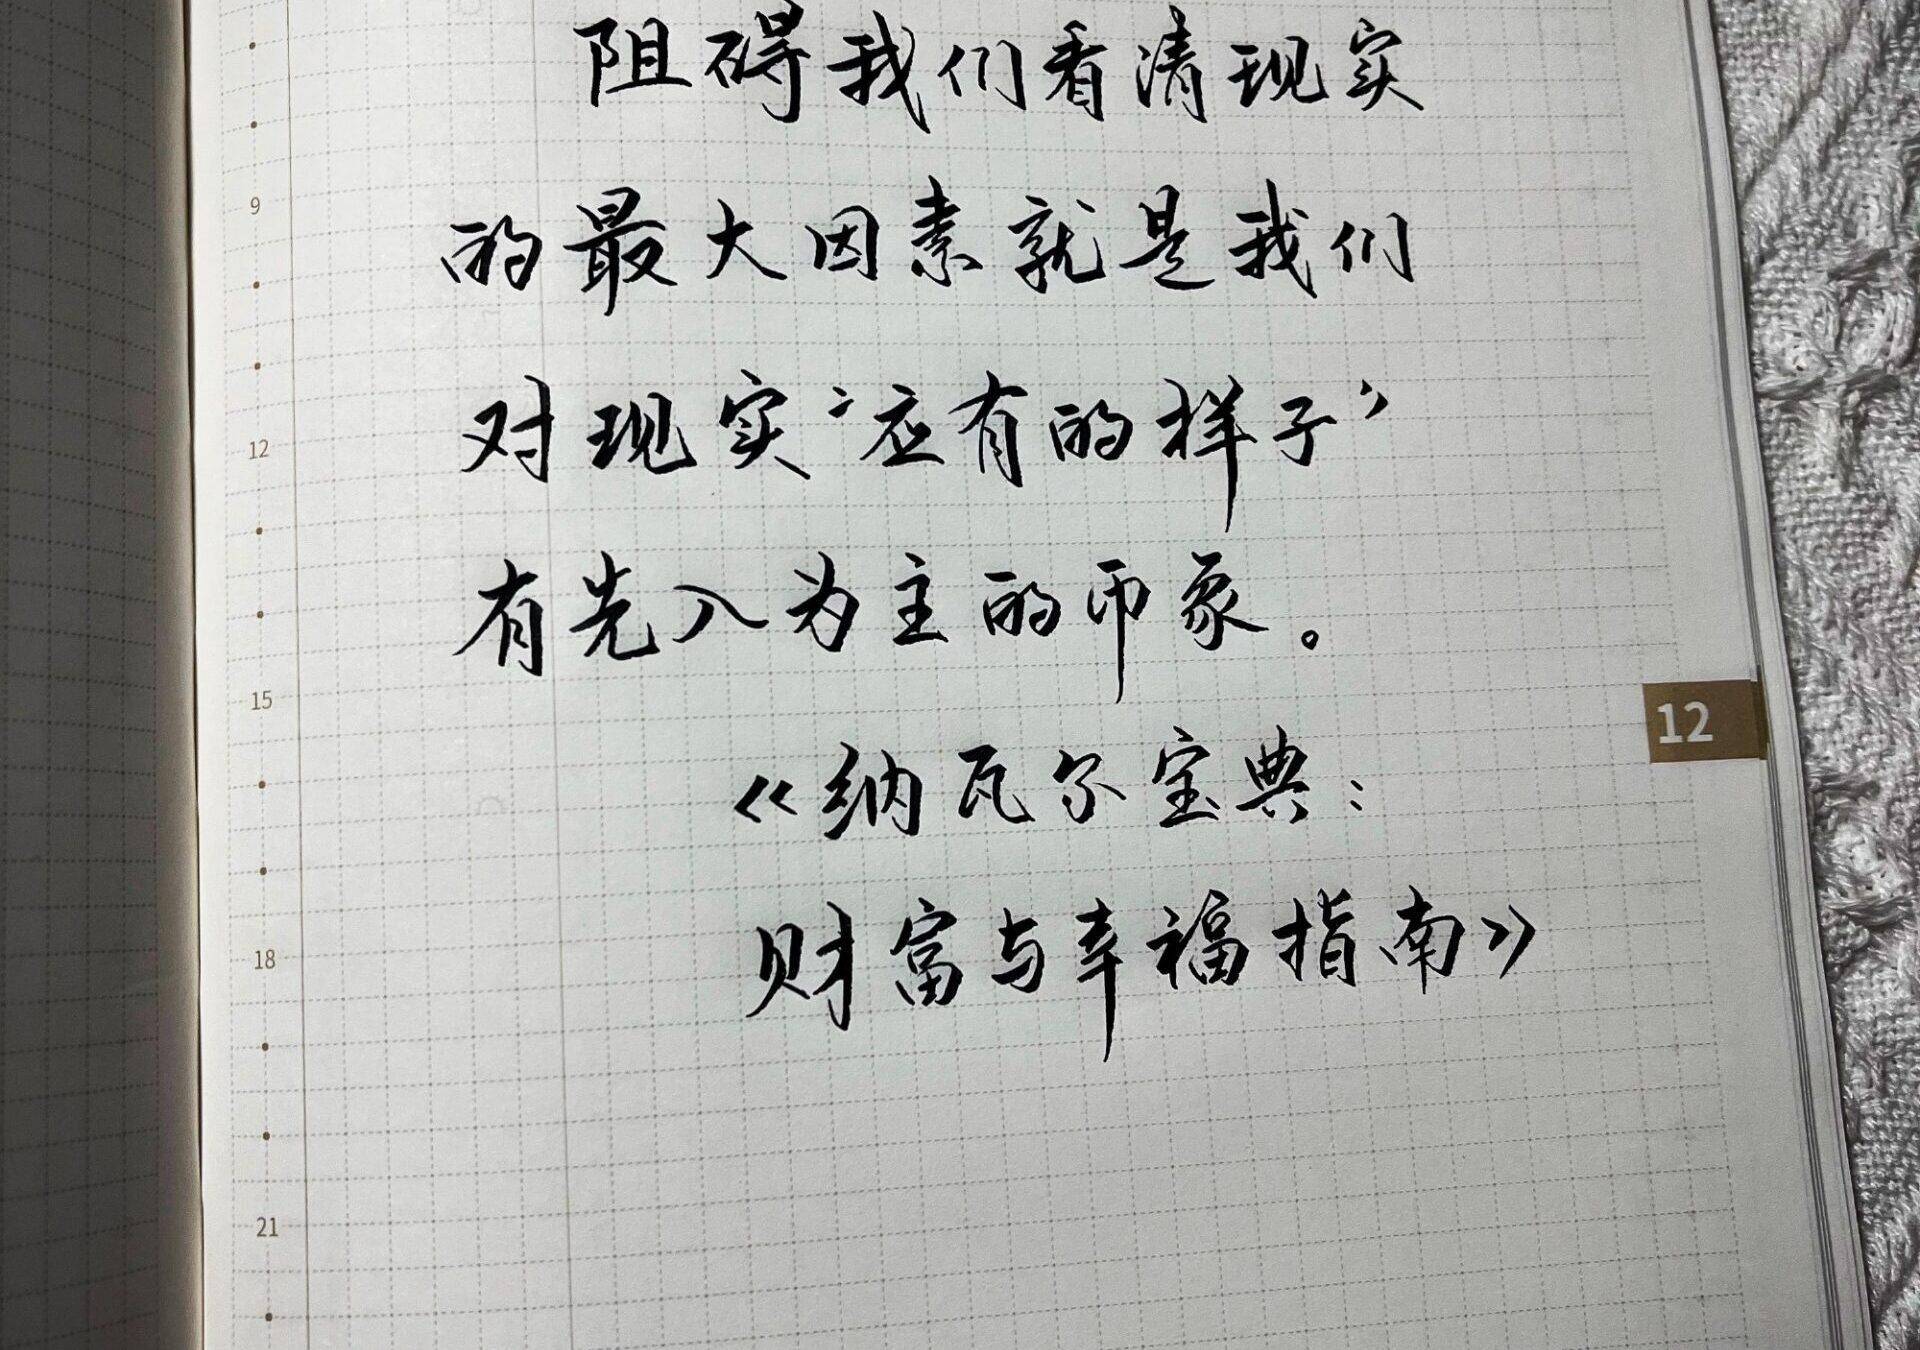 阻碍我们看清现实
9
的最大因素就是我们
12
对现实“应有的样子”
有先入为主的印象。
15
12
《纳瓦尔宝典:
18
财富与幸福指南》
21